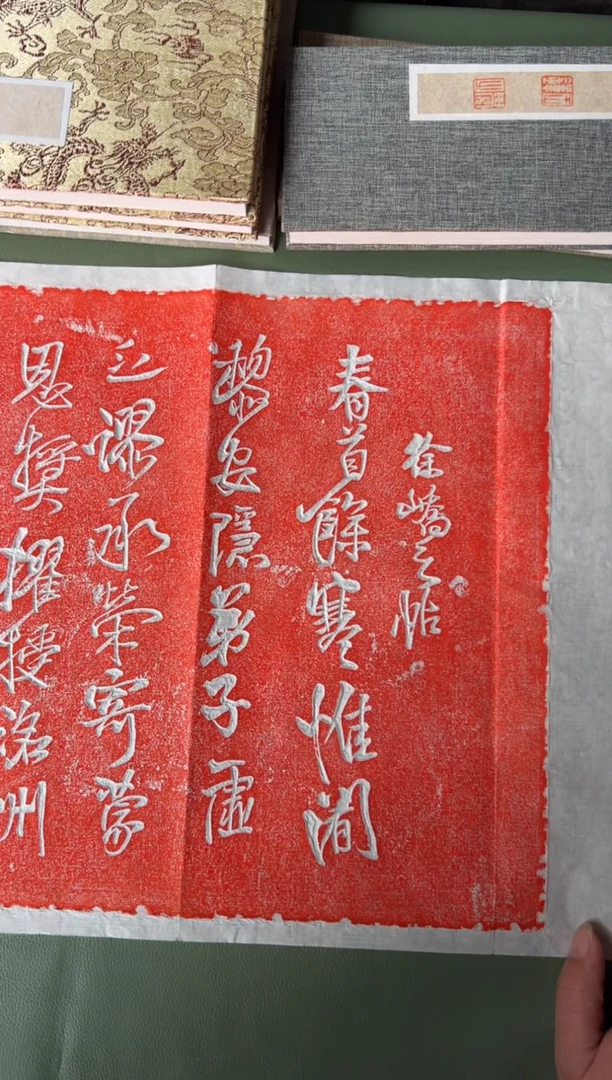 徐嶠之帖
春首餘寒惟闍
黎安隱弟子虛
乏謬承榮寄蒙
恩獎擢授洺州